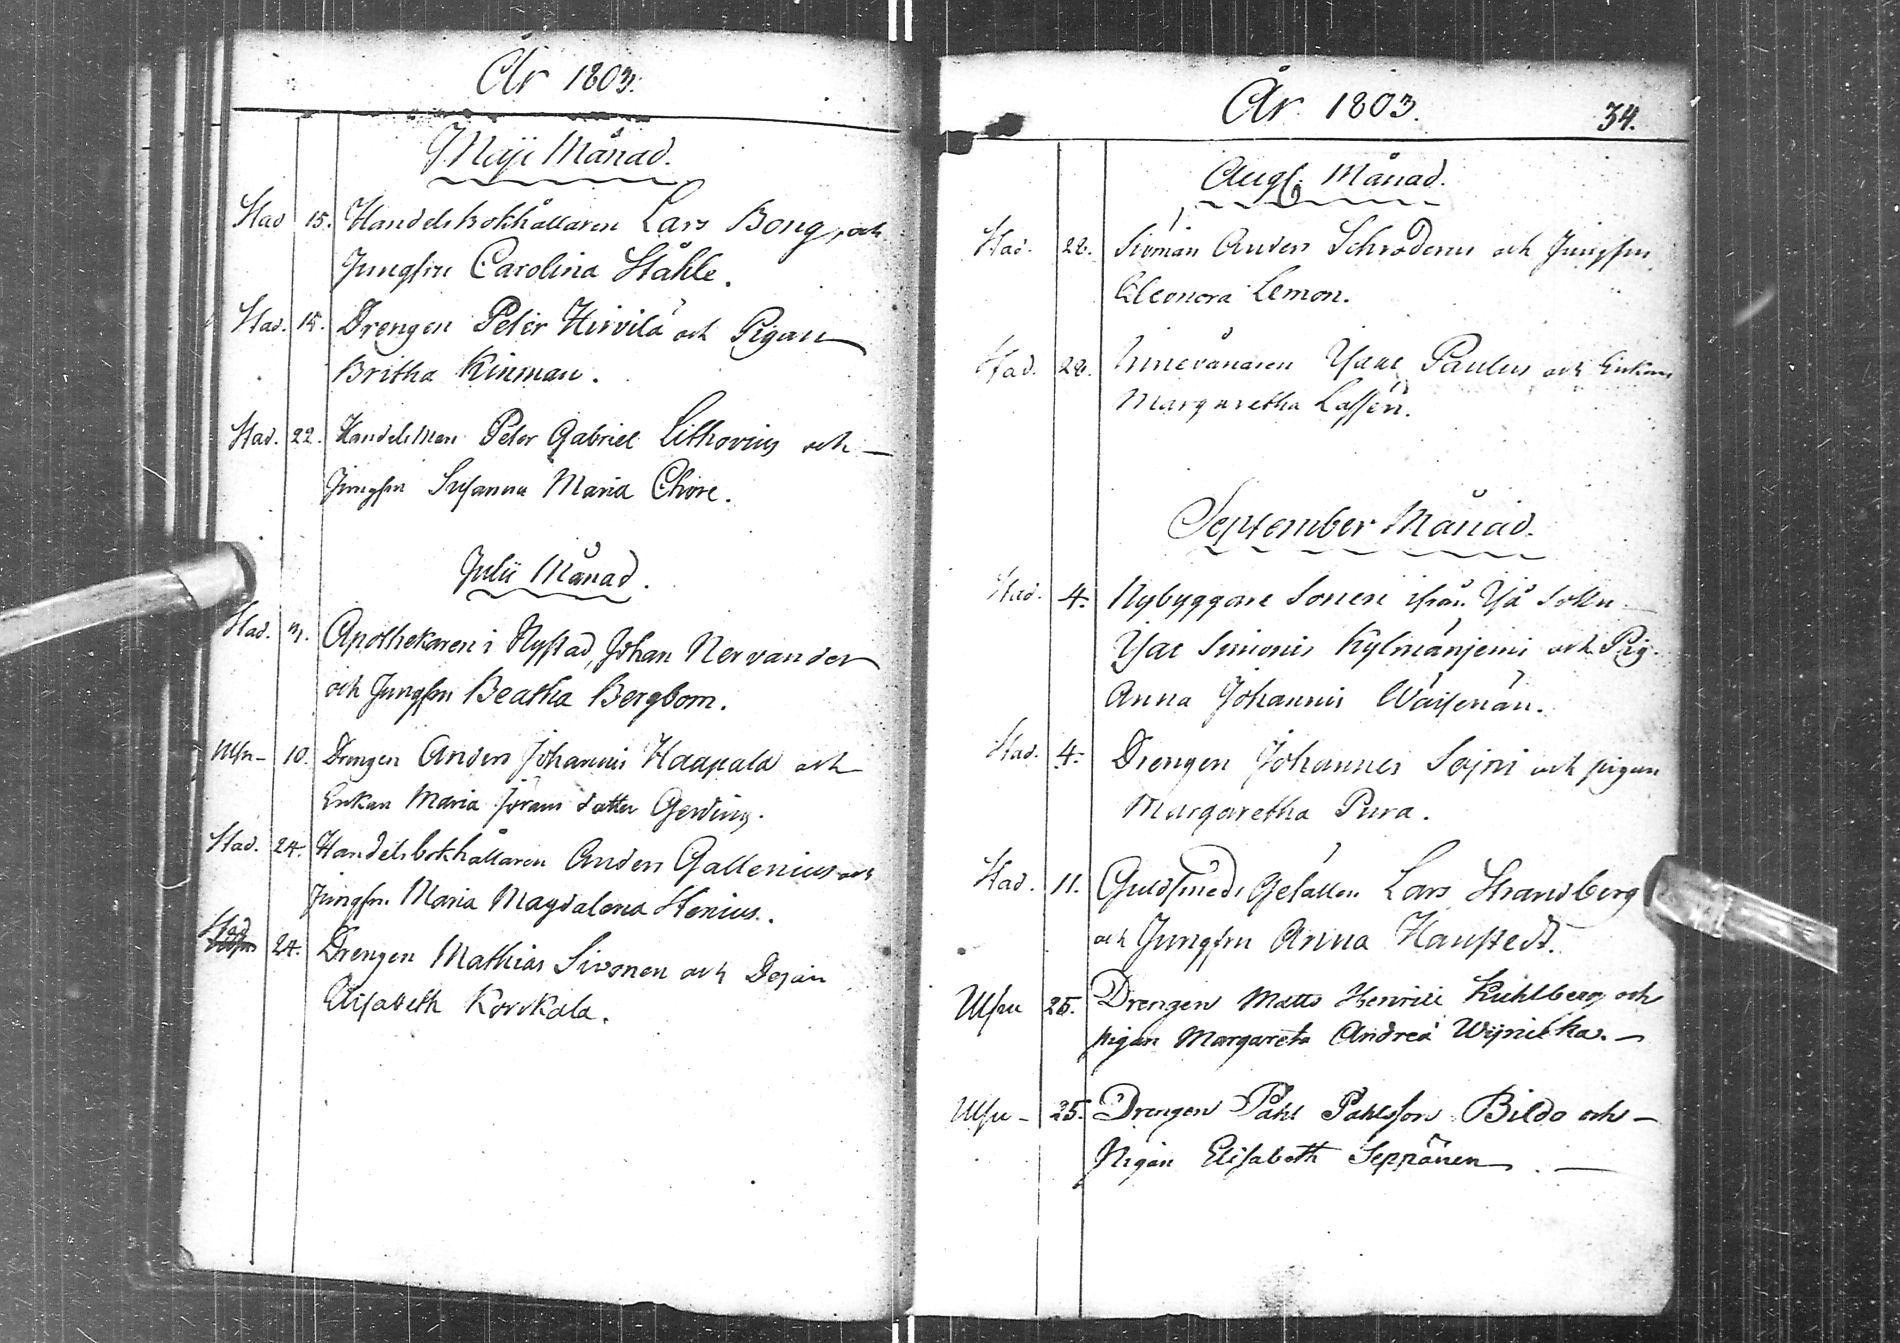 År 1803.
Maji Månad.
Stad 15. Handelsbokhållaren Lars Bong, och
Jungfru Carolina Ståhle.
Stad. 15. Drengen Peter Hirvilä och Pigan
Britha Kinman.
Stad. 22. Handelsman Peter Gabriel Lithovius och
Jungfru Susanna Maria Chore.
Julii Månad.
Stad. 3. Apothekaren i Nystad, Johan Nervander
och Jungfru Beatha Bergbom.
Ulfu- 10. Drengen Anders Johannis Haapala och
Enkan Maria Jörans dotter Gerding.
Stad. 24. Handelsbokhållaren Anders Gallenius och
Jungfru Maria Magdalena Stenius.
Stad 24. Drengen Mathias Sivonen och Dejan
Elisabeth Korkala.
År 1803. 34.
Augs. Månad.
Stad. 28. Sioman Anders Schroderus och Jungfru
Eleonora Lemon.
Stad. 28. Innevånaren Isaac Paulus och Enkan
Margaretha Lassén.
September Månad.
Stad. 4. Nybyggare Sonen ifrån Ijå Sokn
Isac Simonis Kylmänjemi och Pig.
Anna Johannis Wäisenän.
Stad. 4. Drengen Johannes Sojni och pigan
Margaretha Pura.
Stad. 11. Guldsmeds Gesällen Lars Strandberg
och Jungfru Anna Hanstedt.
Ulfu 25. Drengen Matts Henriks Kuhlberg och
pigan Margareta Andreæ Wijnikka.
Ulfu- 25. Drengen Påhl Pahlsson Bildo och
Pigan Elisabeth Seppänen